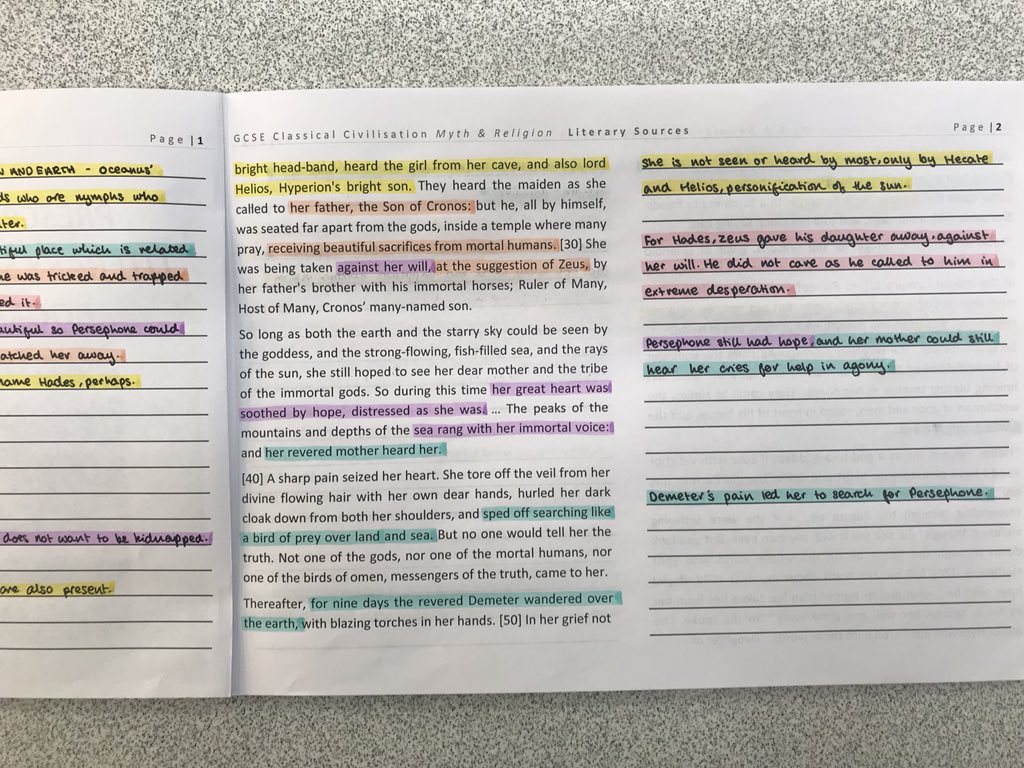 Page | 1
N AND EARTH - OCEANUS'
ds who are nymphs who
ter.
tiful place which is related
he was tricked and trapped
ed it.
autiful so Persephone could
atched her away.
name Hades, perhaps.
does not want to be kidnapped.
are also present.
GCSE Classical Civilisation Myth & Religion Literary Sources
Page | 2
bright head-band, heard the girl from her cave, and also lord
Helios, Hyperion's bright son. They heard the maiden as she
called to her father, the Son of Cronos: but he, all by himself,
was seated far apart from the gods, inside a temple where many
pray, receiving beautiful sacrifices from mortal humans. [30] She
was being taken against her will, at the suggestion of Zeus, by
her father's brother with his immortal horses; Ruler of Many,
Host of Many, Cronos' many-named son.
So long as both the earth and the starry sky could be seen by
the goddess, and the strong-flowing, fish-filled sea, and the rays
of the sun, she still hoped to see her dear mother and the tribe
of the immortal gods. So during this time her great heart was
soothed by hope, distressed as she was. ... The peaks of the
mountains and depths of the sea rang with her immortal voice:
and her revered mother heard her.
[40] A sharp pain seized her heart. She tore off the veil from her
divine flowing hair with her own dear hands, hurled her dark
cloak down from both her shoulders, and sped off searching like
a bird of prey over land and sea. But no one would tell her the
truth. Not one of the gods, nor one of the mortal humans, nor
one of the birds of omen, messengers of the truth, came to her.
Thereafter, for nine days the revered Demeter wandered over
the earth, with blazing torches in her hands. [50] In her grief not
She is not seen or heard by most, only by Hecate
and Helios, personification of the sun.
For Hades, Zeus gave his daughter away, against
her will. He did not care as he called to him in
extreme desperation.
Persephone still had hope, and her mother could still
hear her cries for help in agony.
Demeter's pain led her to search for Persephone.